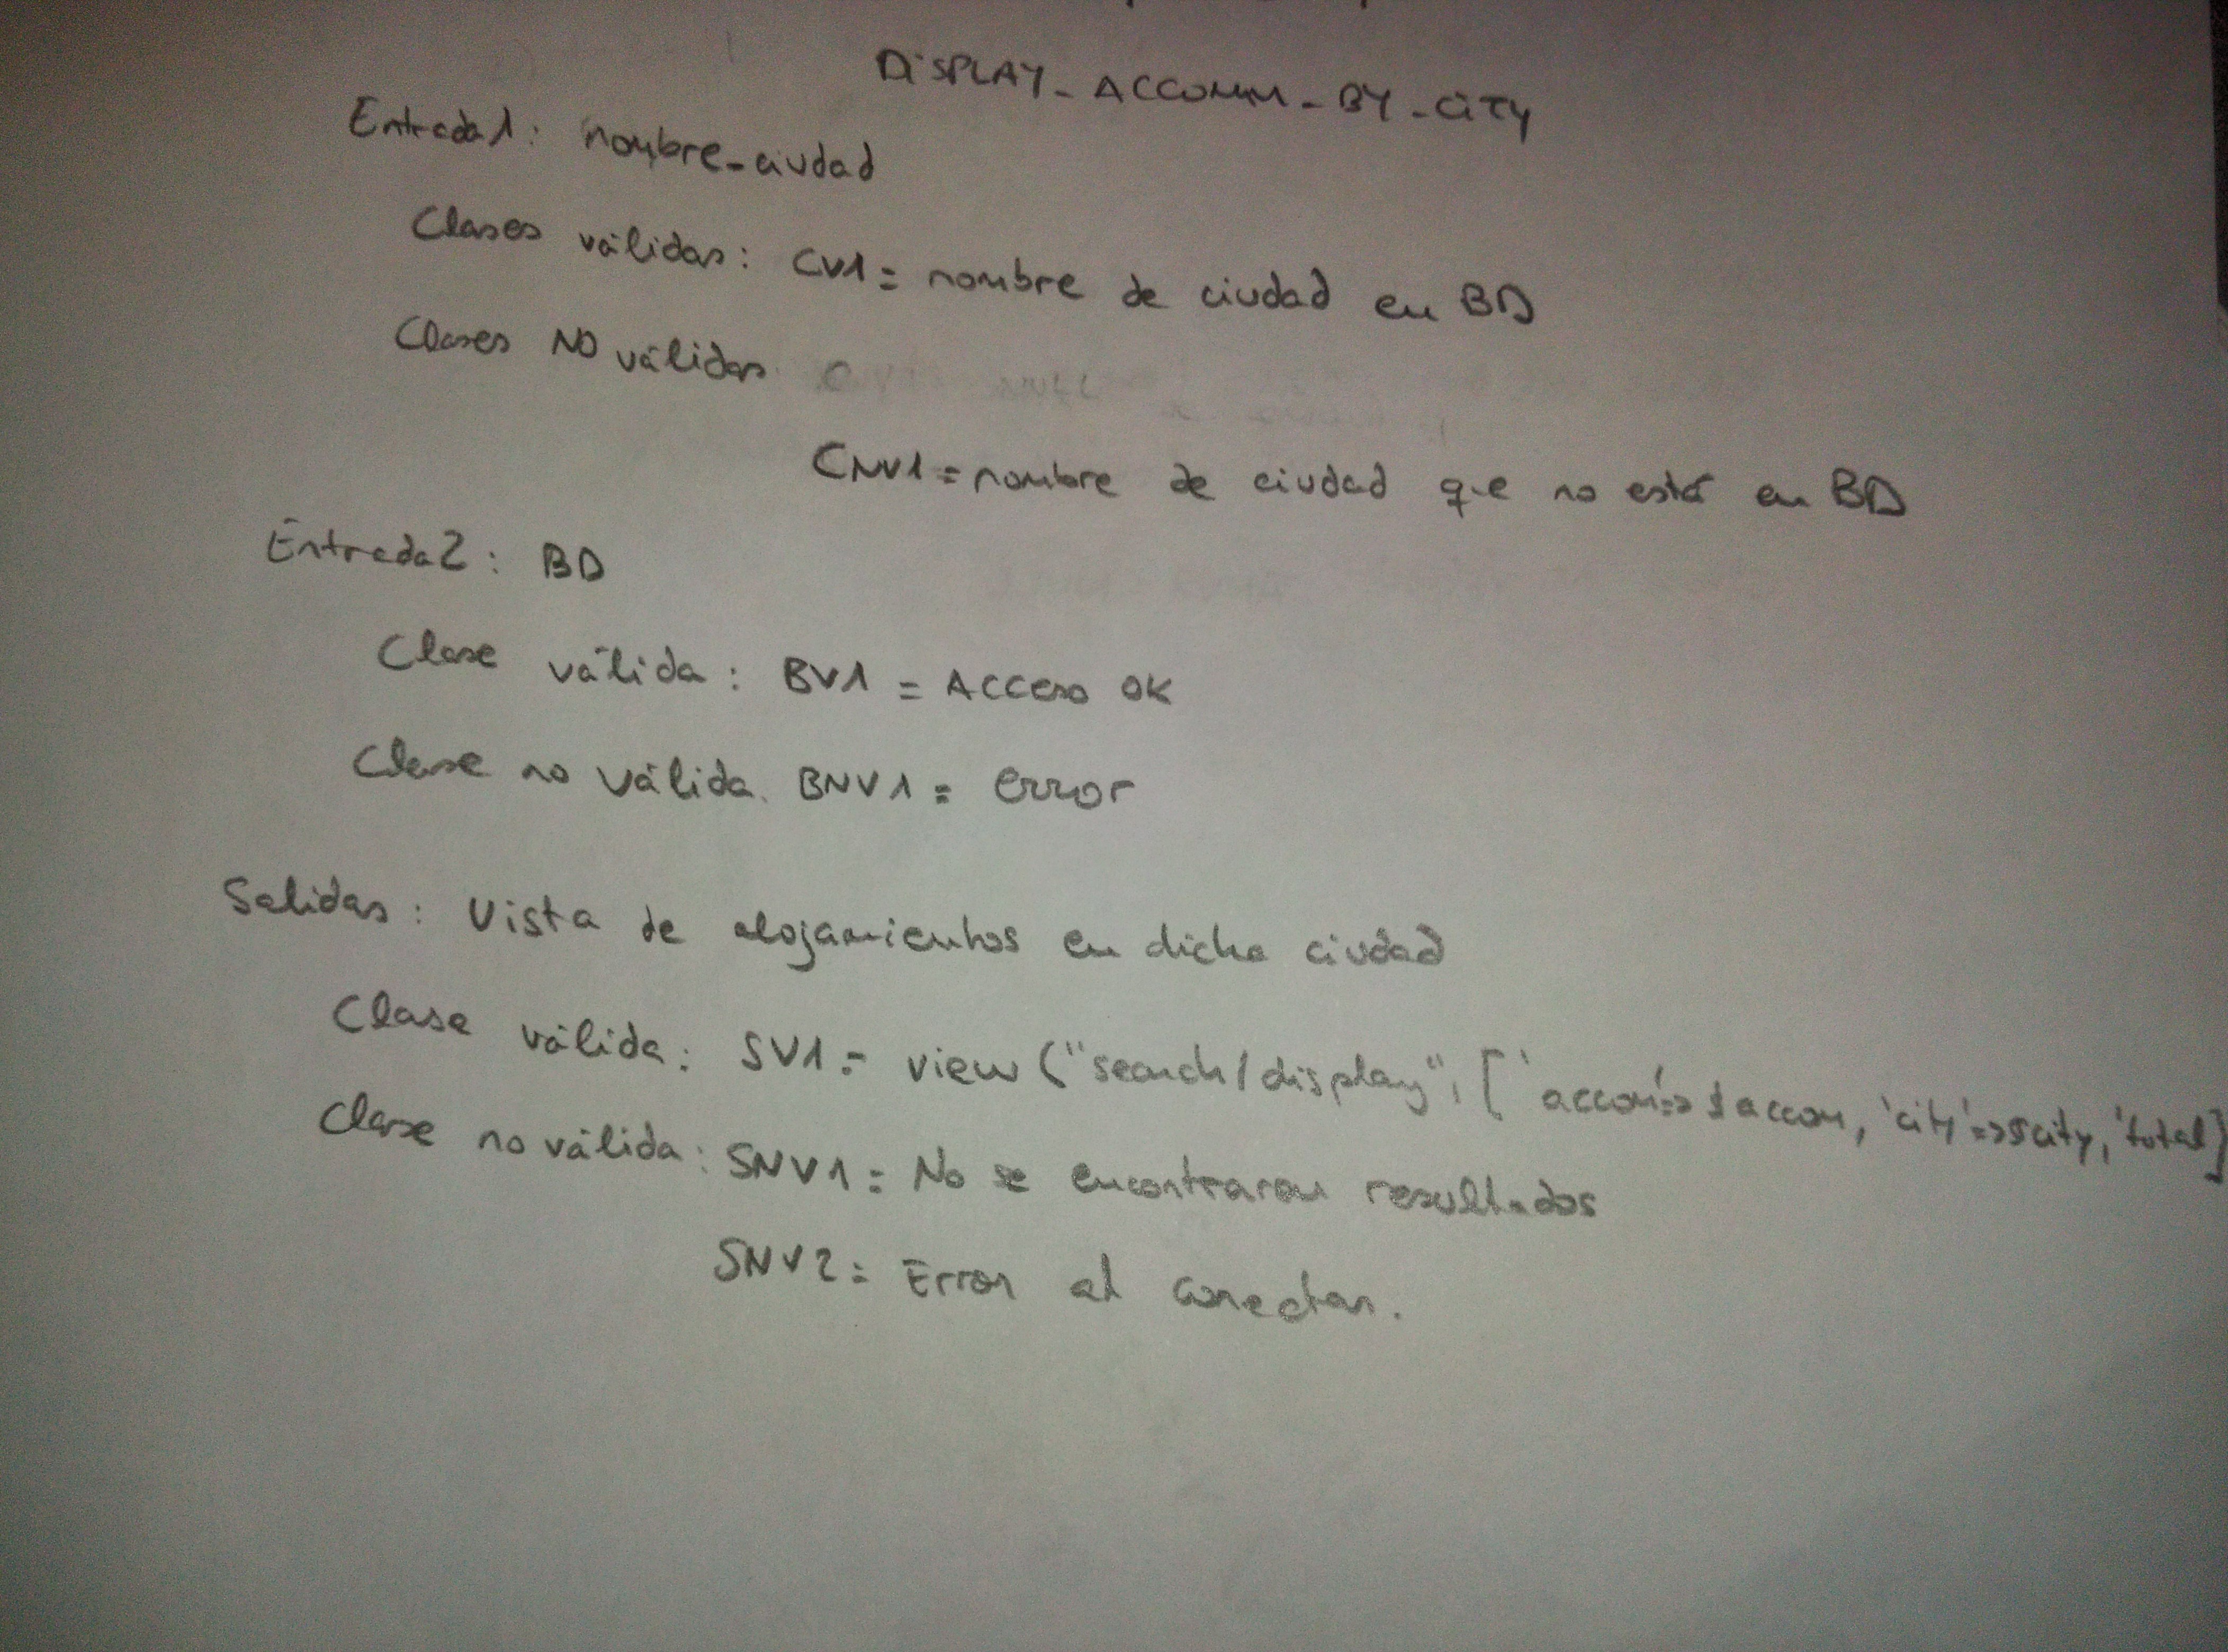 DISPLAY_ACCOMM_BY_CITY
Entrada1: nombre_ciudad
Clases válidas: CV1 = nombre de ciudad en BD
Clases NO válidas
CNV1 = nombre de ciudad que no está en BD
Entrada2: BD
Clase válida: BV1 = Acceso OK
Clase no válida. BNV1 = error
Salidas: Vista de alojamientos en dicha ciudad
Clase válida: SV1 = view ("search/display", ['accom'=>$accom, 'city'=>$city, 'total]
Clase no válida: SNV1 = No se encontraron resultados
SNV2 = Error al conectar.